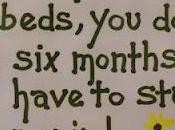 beds, you do
six months
have to stu